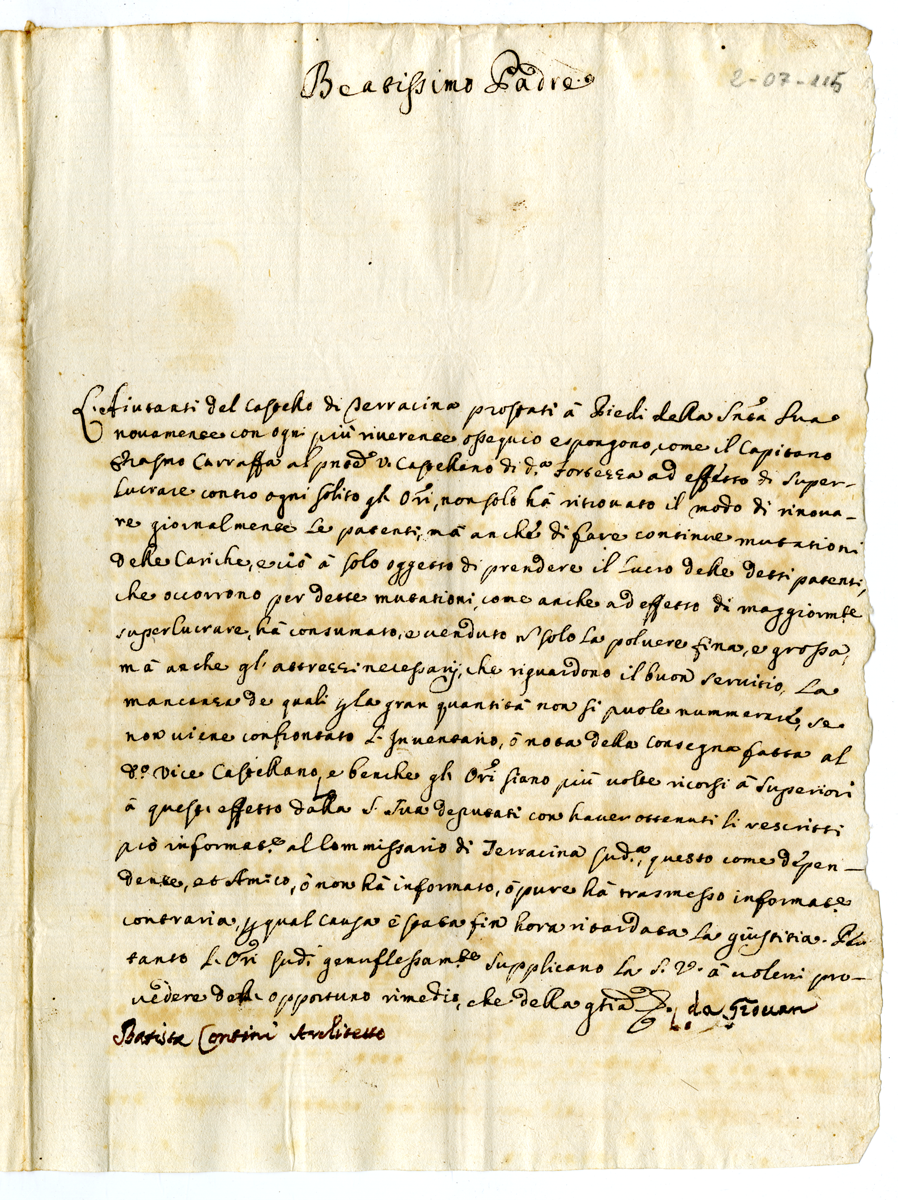 Beatissimo Padre
2-07-115
L'Aiutanti del Castello di Terracina prostati à Piedi della Sntà Sua
novamente con ogni più riverente ossequio espongono, come il Capitano
Erasmo Carraffa al pnte V. Castellano di d.ª Fortezza ad effetto di super-
lucrare contro ogni solito gli Ori, non solo hà ritrovato il modo di rinova-
re giornalmente le patenti, mà anche di fare continue mutationi
delle Cariche, e ciò à solo oggetto di prendere il lucro delle detti patenti,
che occorrono per dette mutationi, come anche ad effetto di maggiormte
superlucrare, hà consumato, e venduto nō solo la polvere fina, e grossa,
mà anche gl'attrezzi necessarij, che riguardono il buon servitio, La
mancanza de quali p la gran quantità non si puole nummerare, se
non viene confrontato l'Inventario, ò nota della Consegna fatta al
d.º Vice Castellano, e benche gli Ori siano più volte ricorsi à Superiori
à questi effetto dalla S. Sua deputati con haver ottenuti li rescritti
p informat.e al Commissario di Terracina sud.º, questo come dépen-
dente, et Amico, ò non hà informato, ò pure hà trasmesso informat.e
contraria, p qual causa è stata fin hora ritardata la giustitia. Per
tanto l'Ori sud.i genuflessam.te supplicano la S. V. à volerli pro-
védere dell opportuno rimedio, che della gtia da Giovan
Batista Contini Architetto